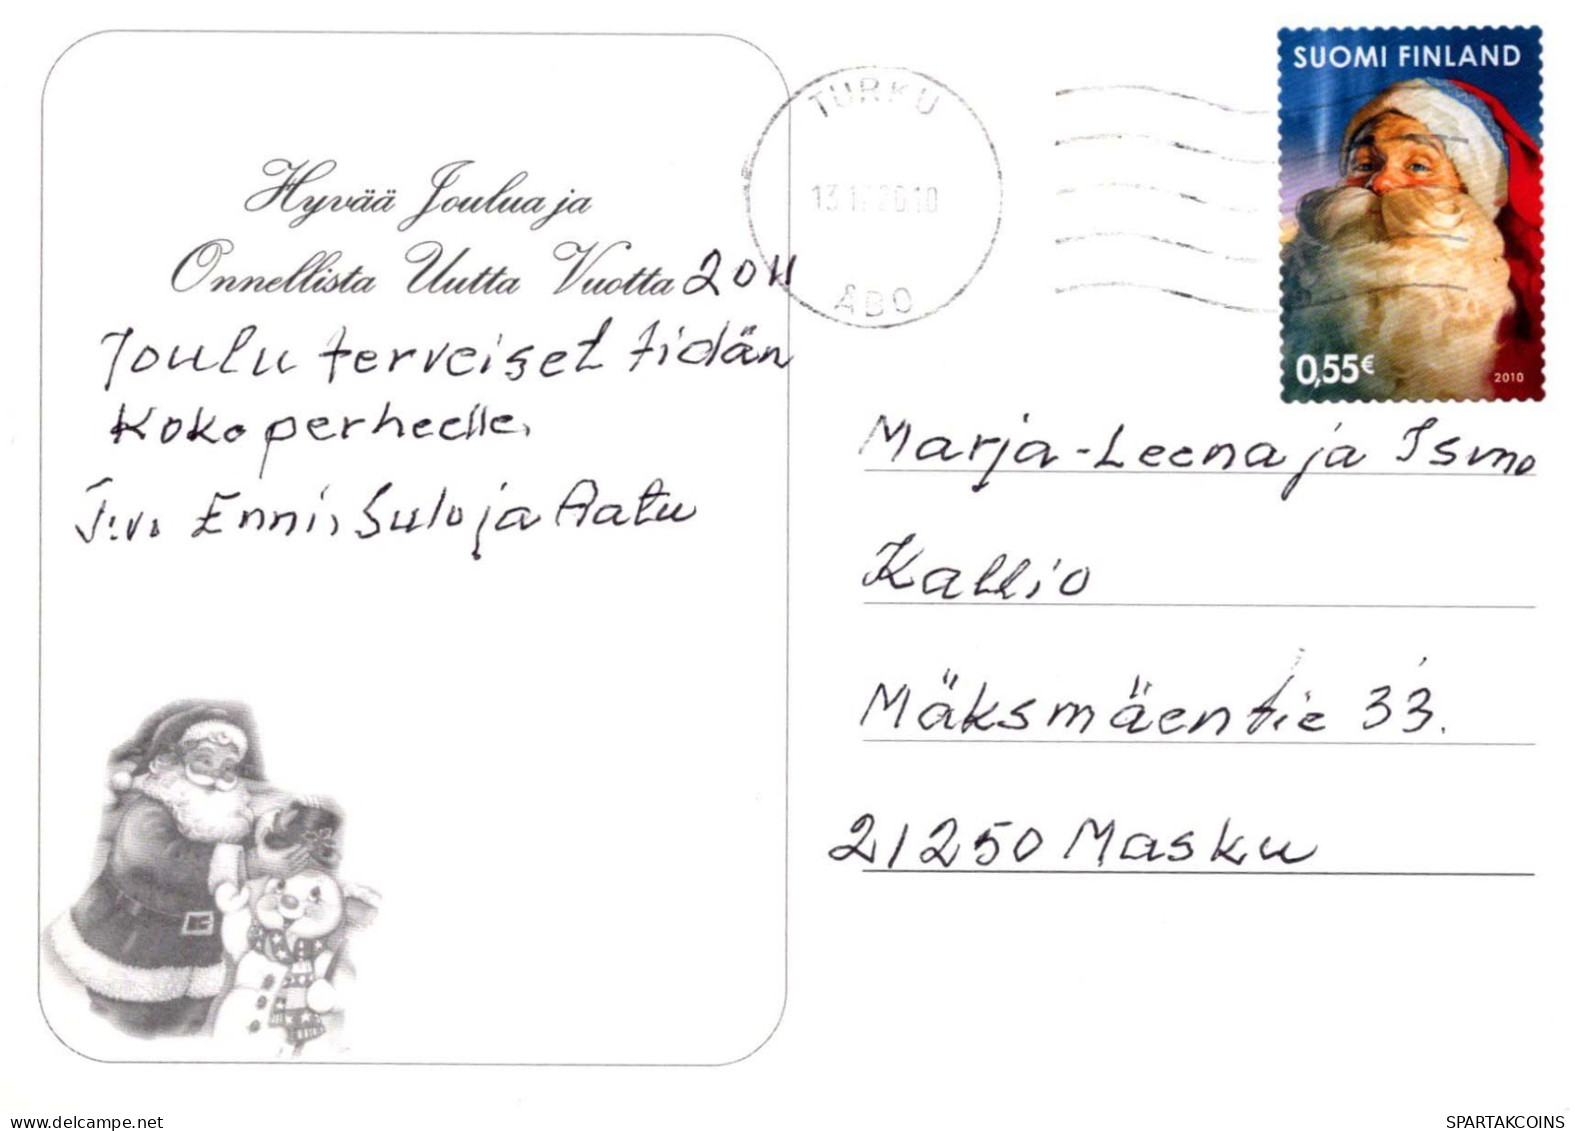 Hyvää Joulua ja
Onnellista Uutta Vuotta 2011
Joulu terveiset tidän
Koko perheelle,
T:v. Enni, Sulo ja Aatu
TURKU
2010
ÅBO
SUOMI FINLAND
0,55€
2010
Marja-Leena ja Ismo
Kallio
Mäksmäentie 33.
21250 Masku
delcampe.net
SPARTAKCOINS